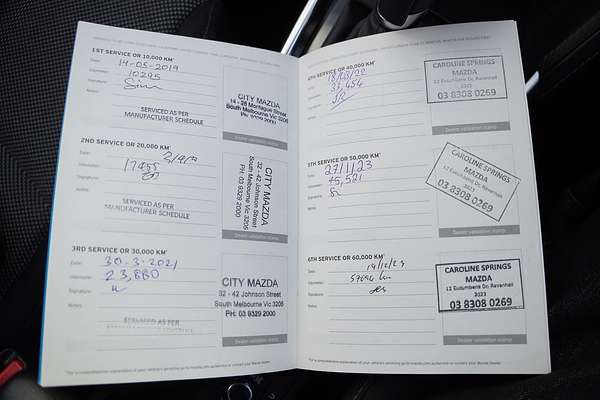 1ST SERVICE OR 10,000 KM*
Date: 14-05-2019
Odometer: 10295
Signature:
Notes:
SERVICED AS PER
MANUFACTURER SCHEDULE
CITY MAZDA
14 - 28 Montague Street
South Melbourne Vic 3205
Dealer validation stamp
2ND SERVICE OR 20,000 KM*
Date:
Odometer: 17455
Signature:
Notes:
SERVICED AS PER
MANUFACTURER SCHEDULE
CITY MAZDA
32 - 42 Johnson Street
South Melbourne Vic 3205
PH: 03 9329 2000
Dealer validation stamp
3RD SERVICE OR 30,000 KM*
Date: 30-3-2021
Odometer: 23,880
Signature:
Notes:
SERVICED AS PER
CITY MAZDA
32 - 42 Johnson Street
South Melbourne Vic 3205
PH: 03 9329 2000
Dealer validation stamp
4TH SERVICE OR 40,000 KM*
Date:
Odometer: 33,454
Signature:
Notes:
CAROLINE SPRINGS
MAZDA
12 Eucumbene Dr, Ravenhall
3023
03 8308 0269
Dealer validation stamp
5TH SERVICE OR 50,000 KM*
Date: 27/1/23
Odometer: 45,591
Signature:
Notes:
CAROLINE SPRINGS
MAZDA
12 Eucumbene Dr, Ravenhall
3023
03 8308 0269
Dealer validation stamp
6TH SERVICE OR 60,000 KM*
Date: 19/12/23
Odometer:
Signature:
Notes:
CAROLINE SPRINGS
MAZDA
12 Eucumbene Dr, Ravenhall
3023
03 8308 0269
Dealer validation stamp